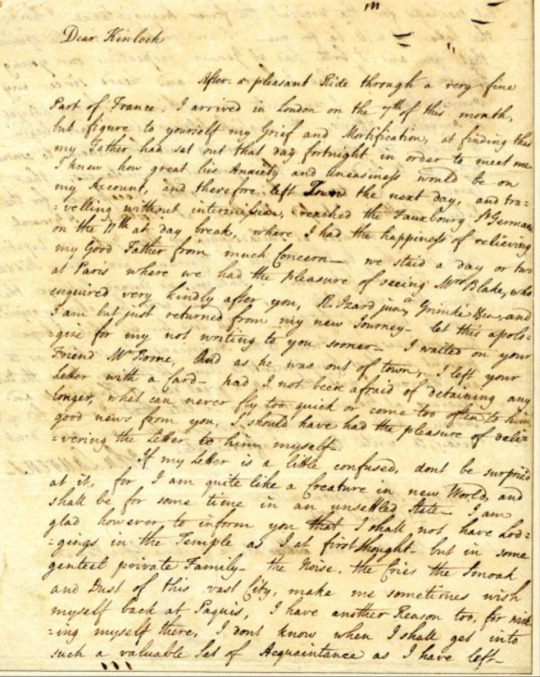 Dear Kinloch
After a pleasant Ride through a very fine
Part of France. I arrived in London on the 7th of this month,
but figure to yourself my Grief and Mortification, at finding that
my Father had set out that day fortnight in order to meet me
I knew how great his Anxiety and Uneasiness would be on
my Account, and therefore left Town the next day, and tra=
=velling without intermission, reached the Fauxbourg St Germain
on the 11th at day break, where I had the happiness of relieving
my Good Father from much Concern— we staid a day or two
at Paris where we had the Pleasure of seeing Mrs Blake, who
enquired very kindly after you, R. Izard junr Grimké &ca, and
I am but just returned from my new Journey— let this apolo=
=gise for my not writing to you sooner— I waited on your
Friend Mr Rome, and as he was out of town, I left your
letter with a Card— had I not been afraid of detaining any
longer, what can never fly too quick or come too often to him
good news from you, I should have had the pleasure of deli=
=vering the Letter to him myself—
If my Letter is a little confused, dont be surprised
at it, for I am quite like a Creature in new World, and
shall be for some time in an unsettled State— I am
glad however to inform you that I shall not have Lod=
=gings in the Temple as I at first thought— but in some
genteel private Family— the Noise, the Cries the Smoak
and Dust of this vast City, make me sometimes wish
myself back at Paquis, I have another Reason too, for wish
=ing myself there, I dont know when I shall get into
such a valuable Set of Acquaintance as I have left—